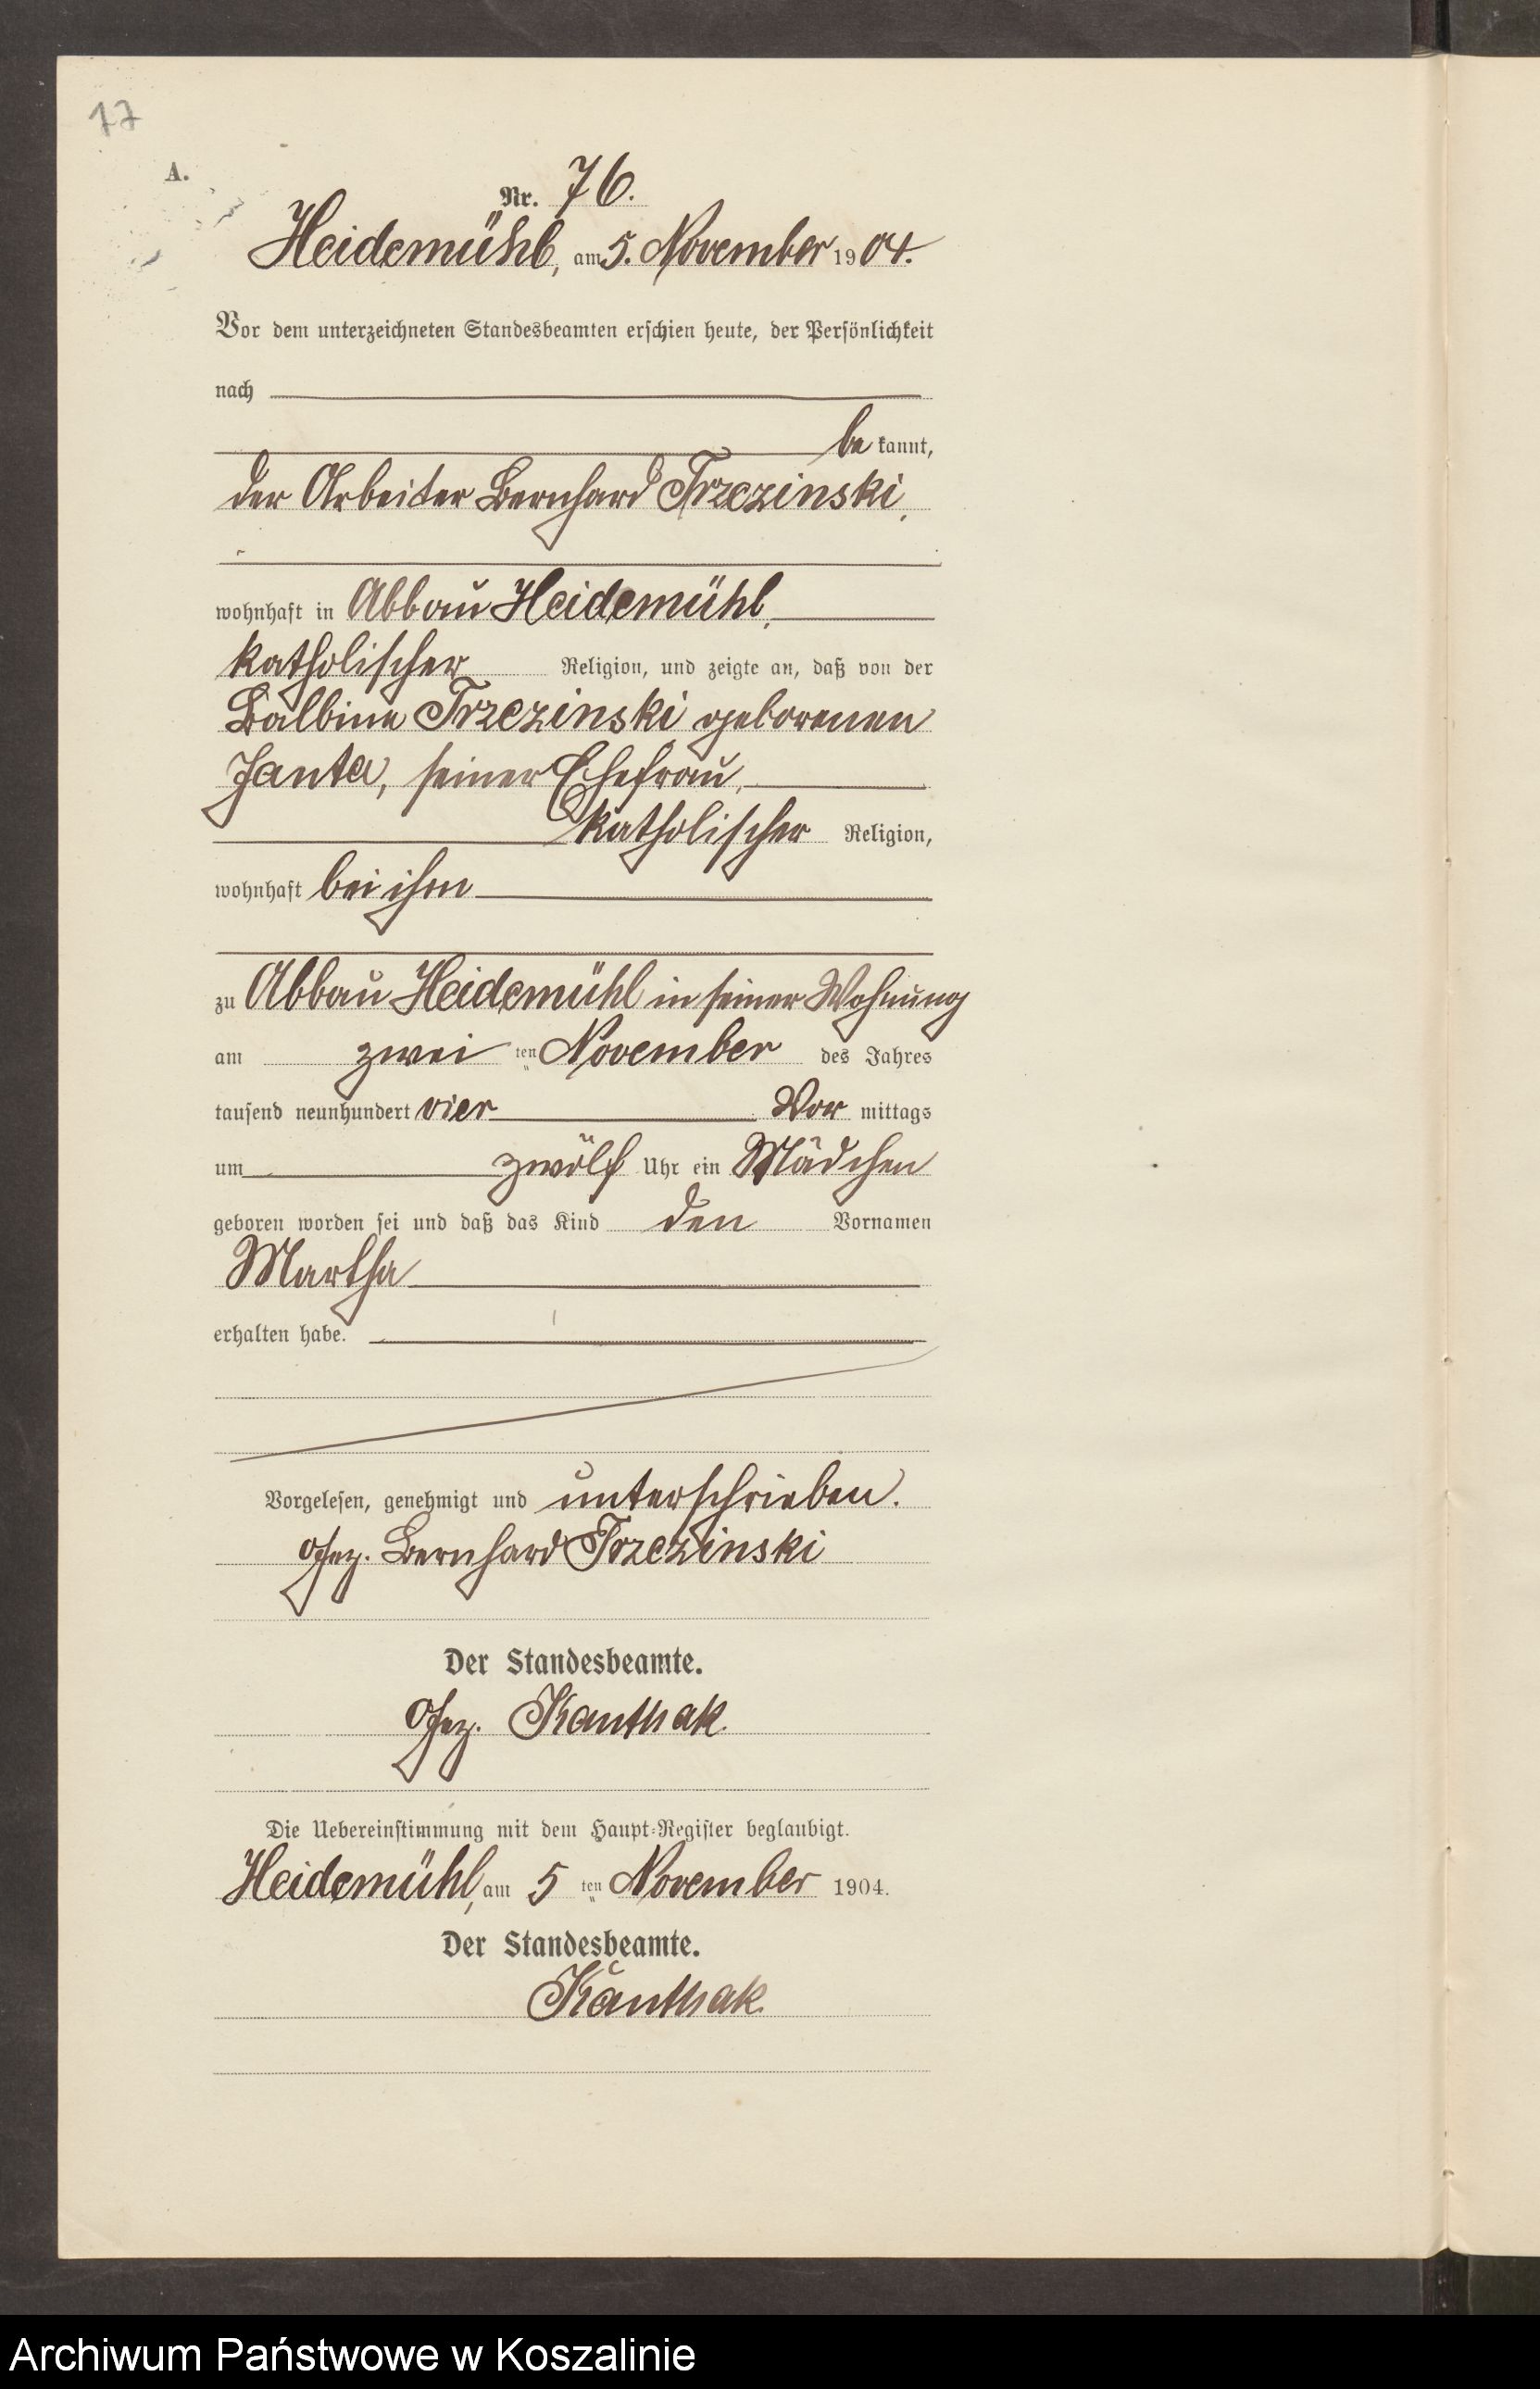 77
A.
Nr. 76.
Heidemühl, am 5. November 1904.
Vor dem unterzeichneten Standesbeamten erschien heute, der Persönlichkeit
nach
be kannt,
der Arbeiter Bernhard Trzezinski,
wohnhaft in Abbau Heidemühl,
katholischer Religion, und zeigte an, daß von der
Balbine Trzezinski geborenen
Janta, seiner Ehefrau,
katholischer Religion,
wohnhaft bei ihm
zu Abbau Heidemühl in seiner Wohnung
am zwei ten November des Jahres
tausend neunhundert vier Vor mittags
um zwölf Uhr ein Mädchen
geboren worden sei und daß das Kind den Vornamen
Martha
erhalten habe.
Vorgelesen, genehmigt und unterschrieben.
Gez. Bernhard Trzezinski
Der Standesbeamte.
Gez. Kanthak
Die Uebereinstimmung mit dem Haupt-Register beglaubigt.
Heidemühl, am 5 ten November 1904.
Der Standesbeamte.
Kanthak
Archiwum Państwowe w Koszalinie